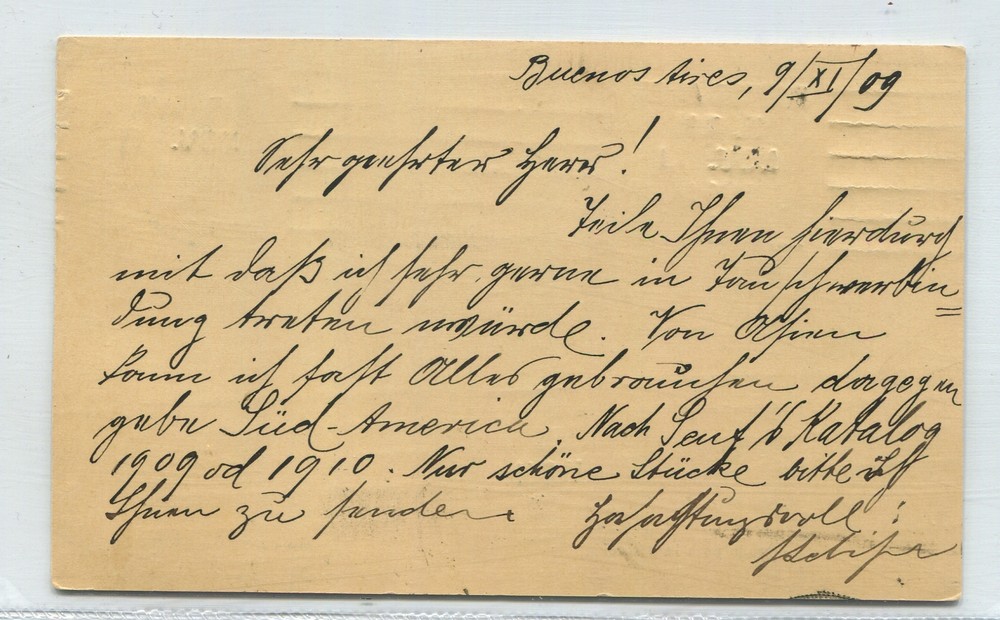 Buenos Aires, 9/XI/09
Sehr geehrter Herr!
Teile Ihnen hierdurch
mit daß ich sehr gerne in Tauschverbin=
dung treten würde. Von Asien
kann ich fast Alles gebrauchen dagegen
gebe Süd-America. Nach Senf's Katalog
1909 od 1910. Nur schöne Stücke bitte ich
Ihnen zu senden. Hochachtungsvoll: